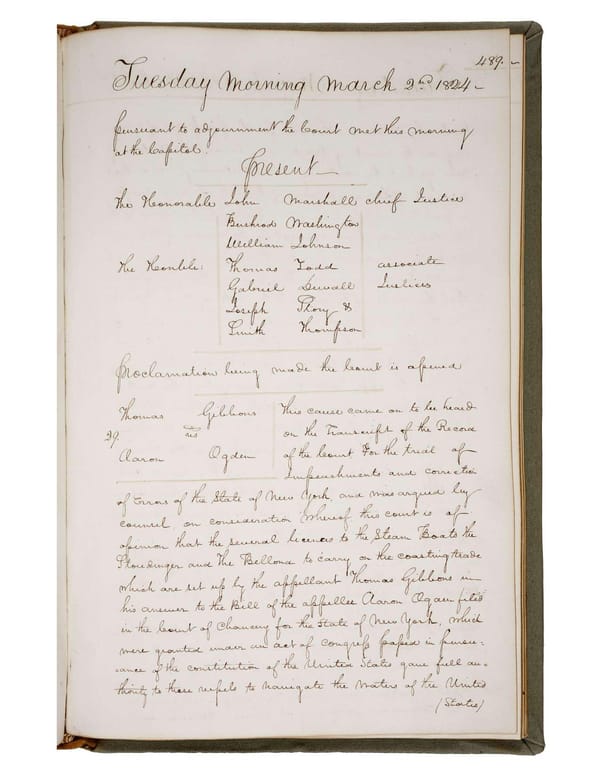 489.
Tuesday Morning March 2nd 1824
Pursuant to adjournment the Court met this morning
at the Capitol.
Present
The Honorable John Marshall chief Justice
Bushrod Washington
William Johnson
The Honble: Thomas Todd associate
Gabriel Duvall Justices
Joseph Story &
Smith Thompson
Proclamation being made the Court is opened
Thomas Gibbons
29. vs
Aaron Ogden
This cause came on to be heard
on the Transcript of the Record
of the Court for the trial of
Impeachments and correction
of Errors of the State of New York, and was argued by
counsel, on consideration whereof, this court is of
opinion that the several licenses to the Steam Boats the
Stoudinger and The Bellona to carry on the coasting trade
which are set up by the appellant Thomas Gibbons in
his answer to the Bill of the appellee Aaron Ogden filed
in the Court of Chancery for the State of New York, which
were granted under an act of congress passed in pursu-
ance of the constitution of the United States gave full au-
thority to those vessels to navigate the waters of the United
(States)